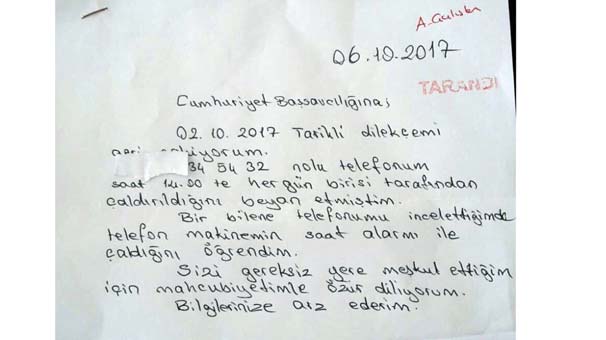 06.10.2017
TARANDI
Cumhuriyet Başsavcılığına;
02.10.2017 Tarihli dilekçemi
geri çekiyorum.
34 54 32 nolu telefonum
saat 14.00 te hergün birisi tarafından
çaldırıldığını beyan etmiştim.
Bir bilene telefonumu incelettiğimde
telefon makinemin saat alarmı ile
çaldığını öğrendim.
Sizi gereksiz yere meşkul ettiğim
için mahcubiyetimle özür diliyorum.
Bilgilerinize arz ederim.